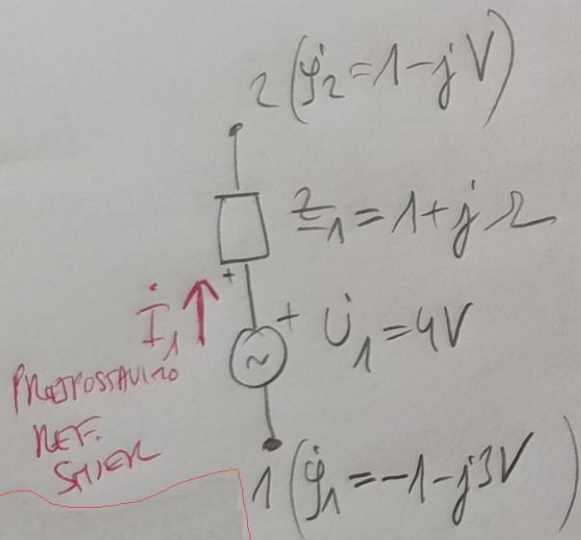 2 (φ̇₂ = 1 - j V)
Z₁ = 1 + j Ω
+
İ₁
+ U̇₁ = 4V
PRETPOSTAVIMO
REF.
SMJER
1 (φ̇₁ = -1 - j3V)